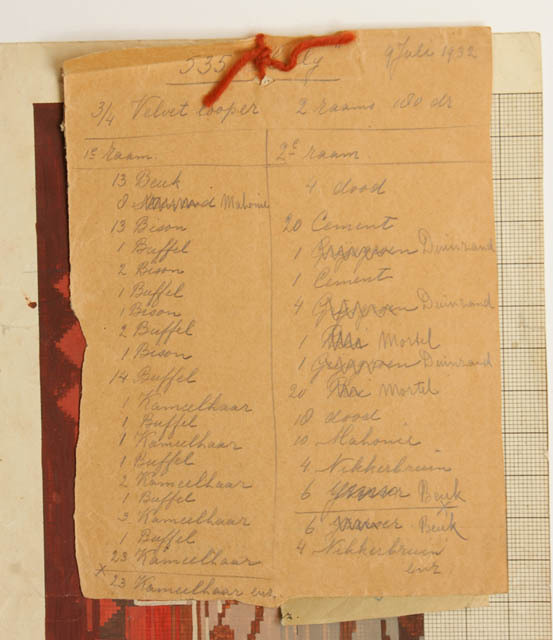 535 9 Juli 1932
3/4 Velvet looper 2 raams 180 dr
1e raam.
13 Beuk
8 Mahonie
13 Bison
1 Buffel
2 Bison
1 Buffel
1 Bison
2 Buffel
1 Bison
14 Buffel
1 Kameelhaar
1 Buffel
1 Kameelhaar
1 Buffel
2 Kameelhaar
1 Buffel
3 Kameelhaar
1 Buffel
23 Kameelhaar
x 23 Kameelhaar enz.
2e raam
4 dood
20 Cement
1 Duinzand
1 Cement
4 Duinzand
1 Mortel
1 Duinzand
20 Mortel
18 dood
10 Mahonie
4 Nikkerbruin
6 Beuk
6 Beuk
4 Nikkerbruin
enz